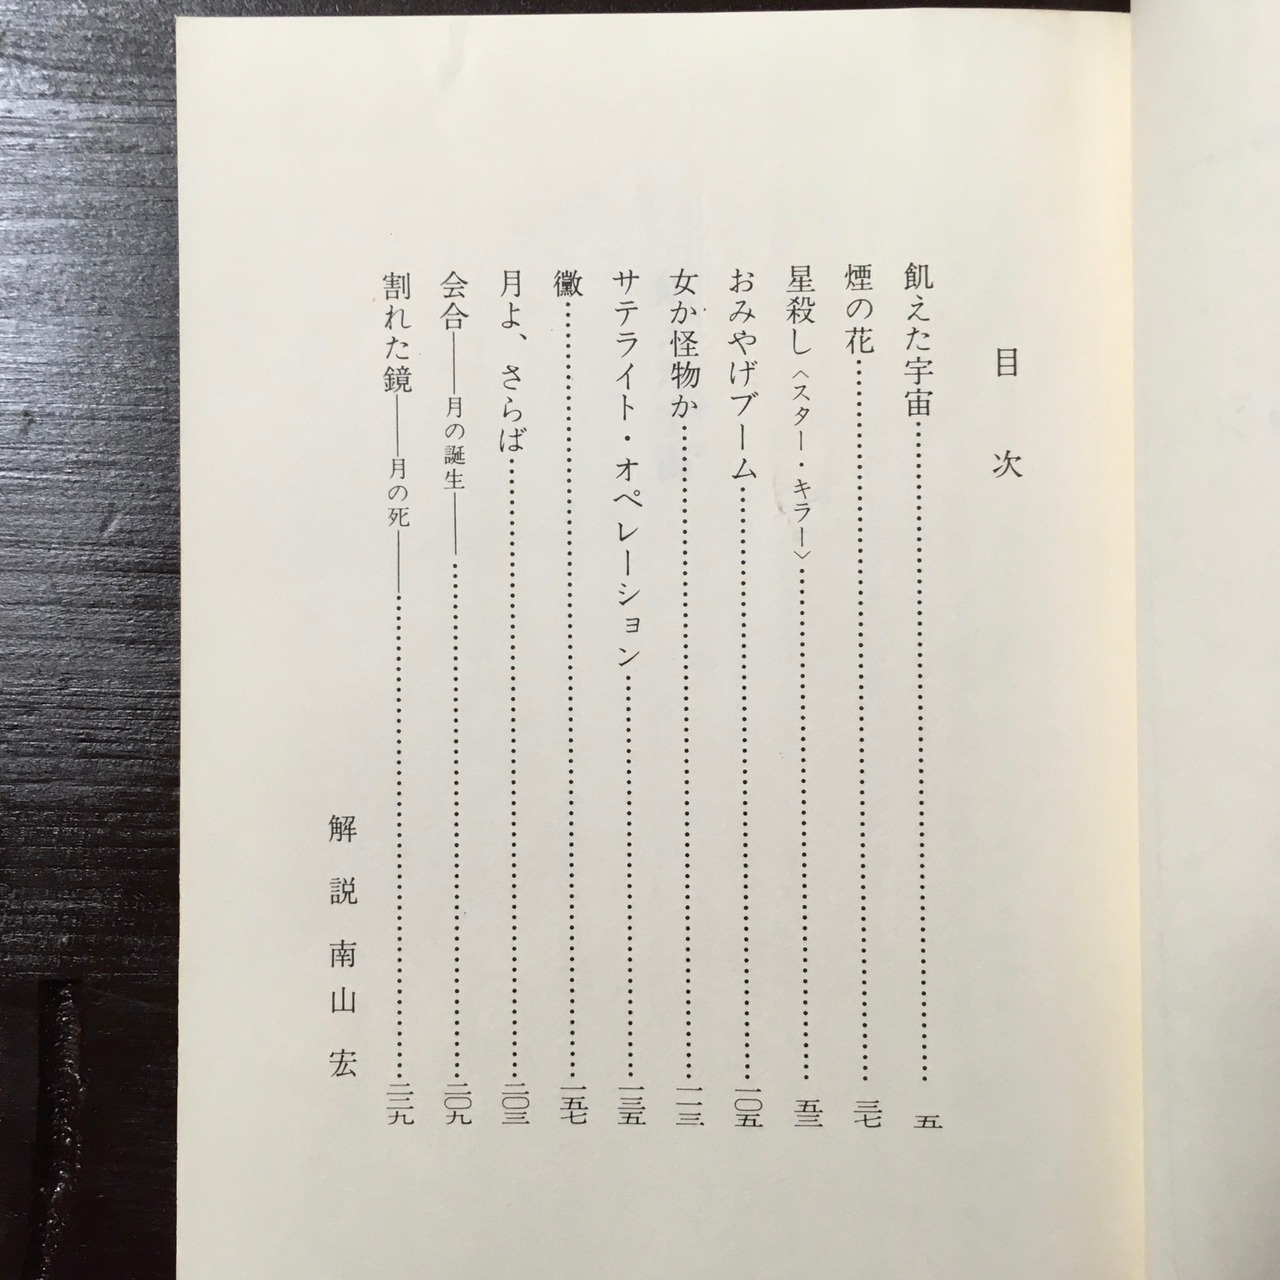 目次
飢えた宇宙……五
煙の花……三七
星殺し〈スター・キラー〉……五三
おみやげブーム……一〇五
女か怪物か……一一三
サテライト・オペレーション……一三五
黴……一五七
月よ、さらば……二〇三
会合――月の誕生――……二〇九
割れた鏡――月の死――……二二九
解説 南山宏